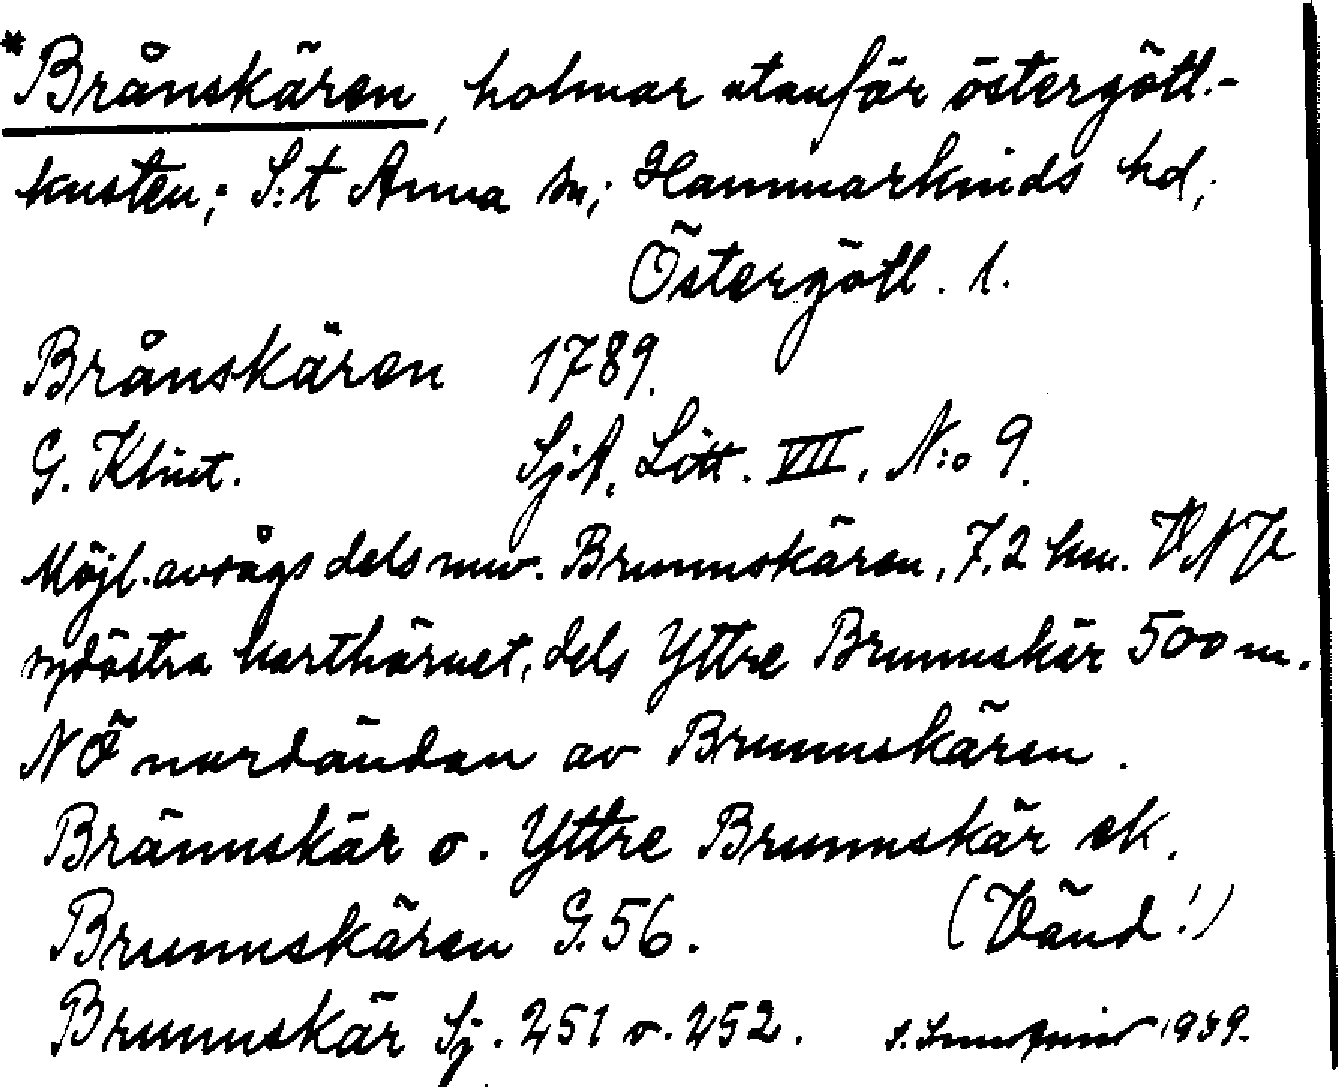 *Brånskären, holmar utanför östergötl.-
kusten; S:t Anna sn; Hammarkinds hd,
Östergötl. l.
Brånskären 1789.
G. Klint. SjA, Litt. VII, N:o 9.
Möjl. avsågs dels nuv. Brunnskären, 7,2 km. VNV
sydöstra karthörnet, dels Yttre Brunnskär 500 m.
NÖ nordändan av Brunnskären.
Brännskär o. Yttre Brunnskär ek.
Brunnskären G. 56. (Vänd!)
Brunnskär Sj. 251 o. 252. 1939.